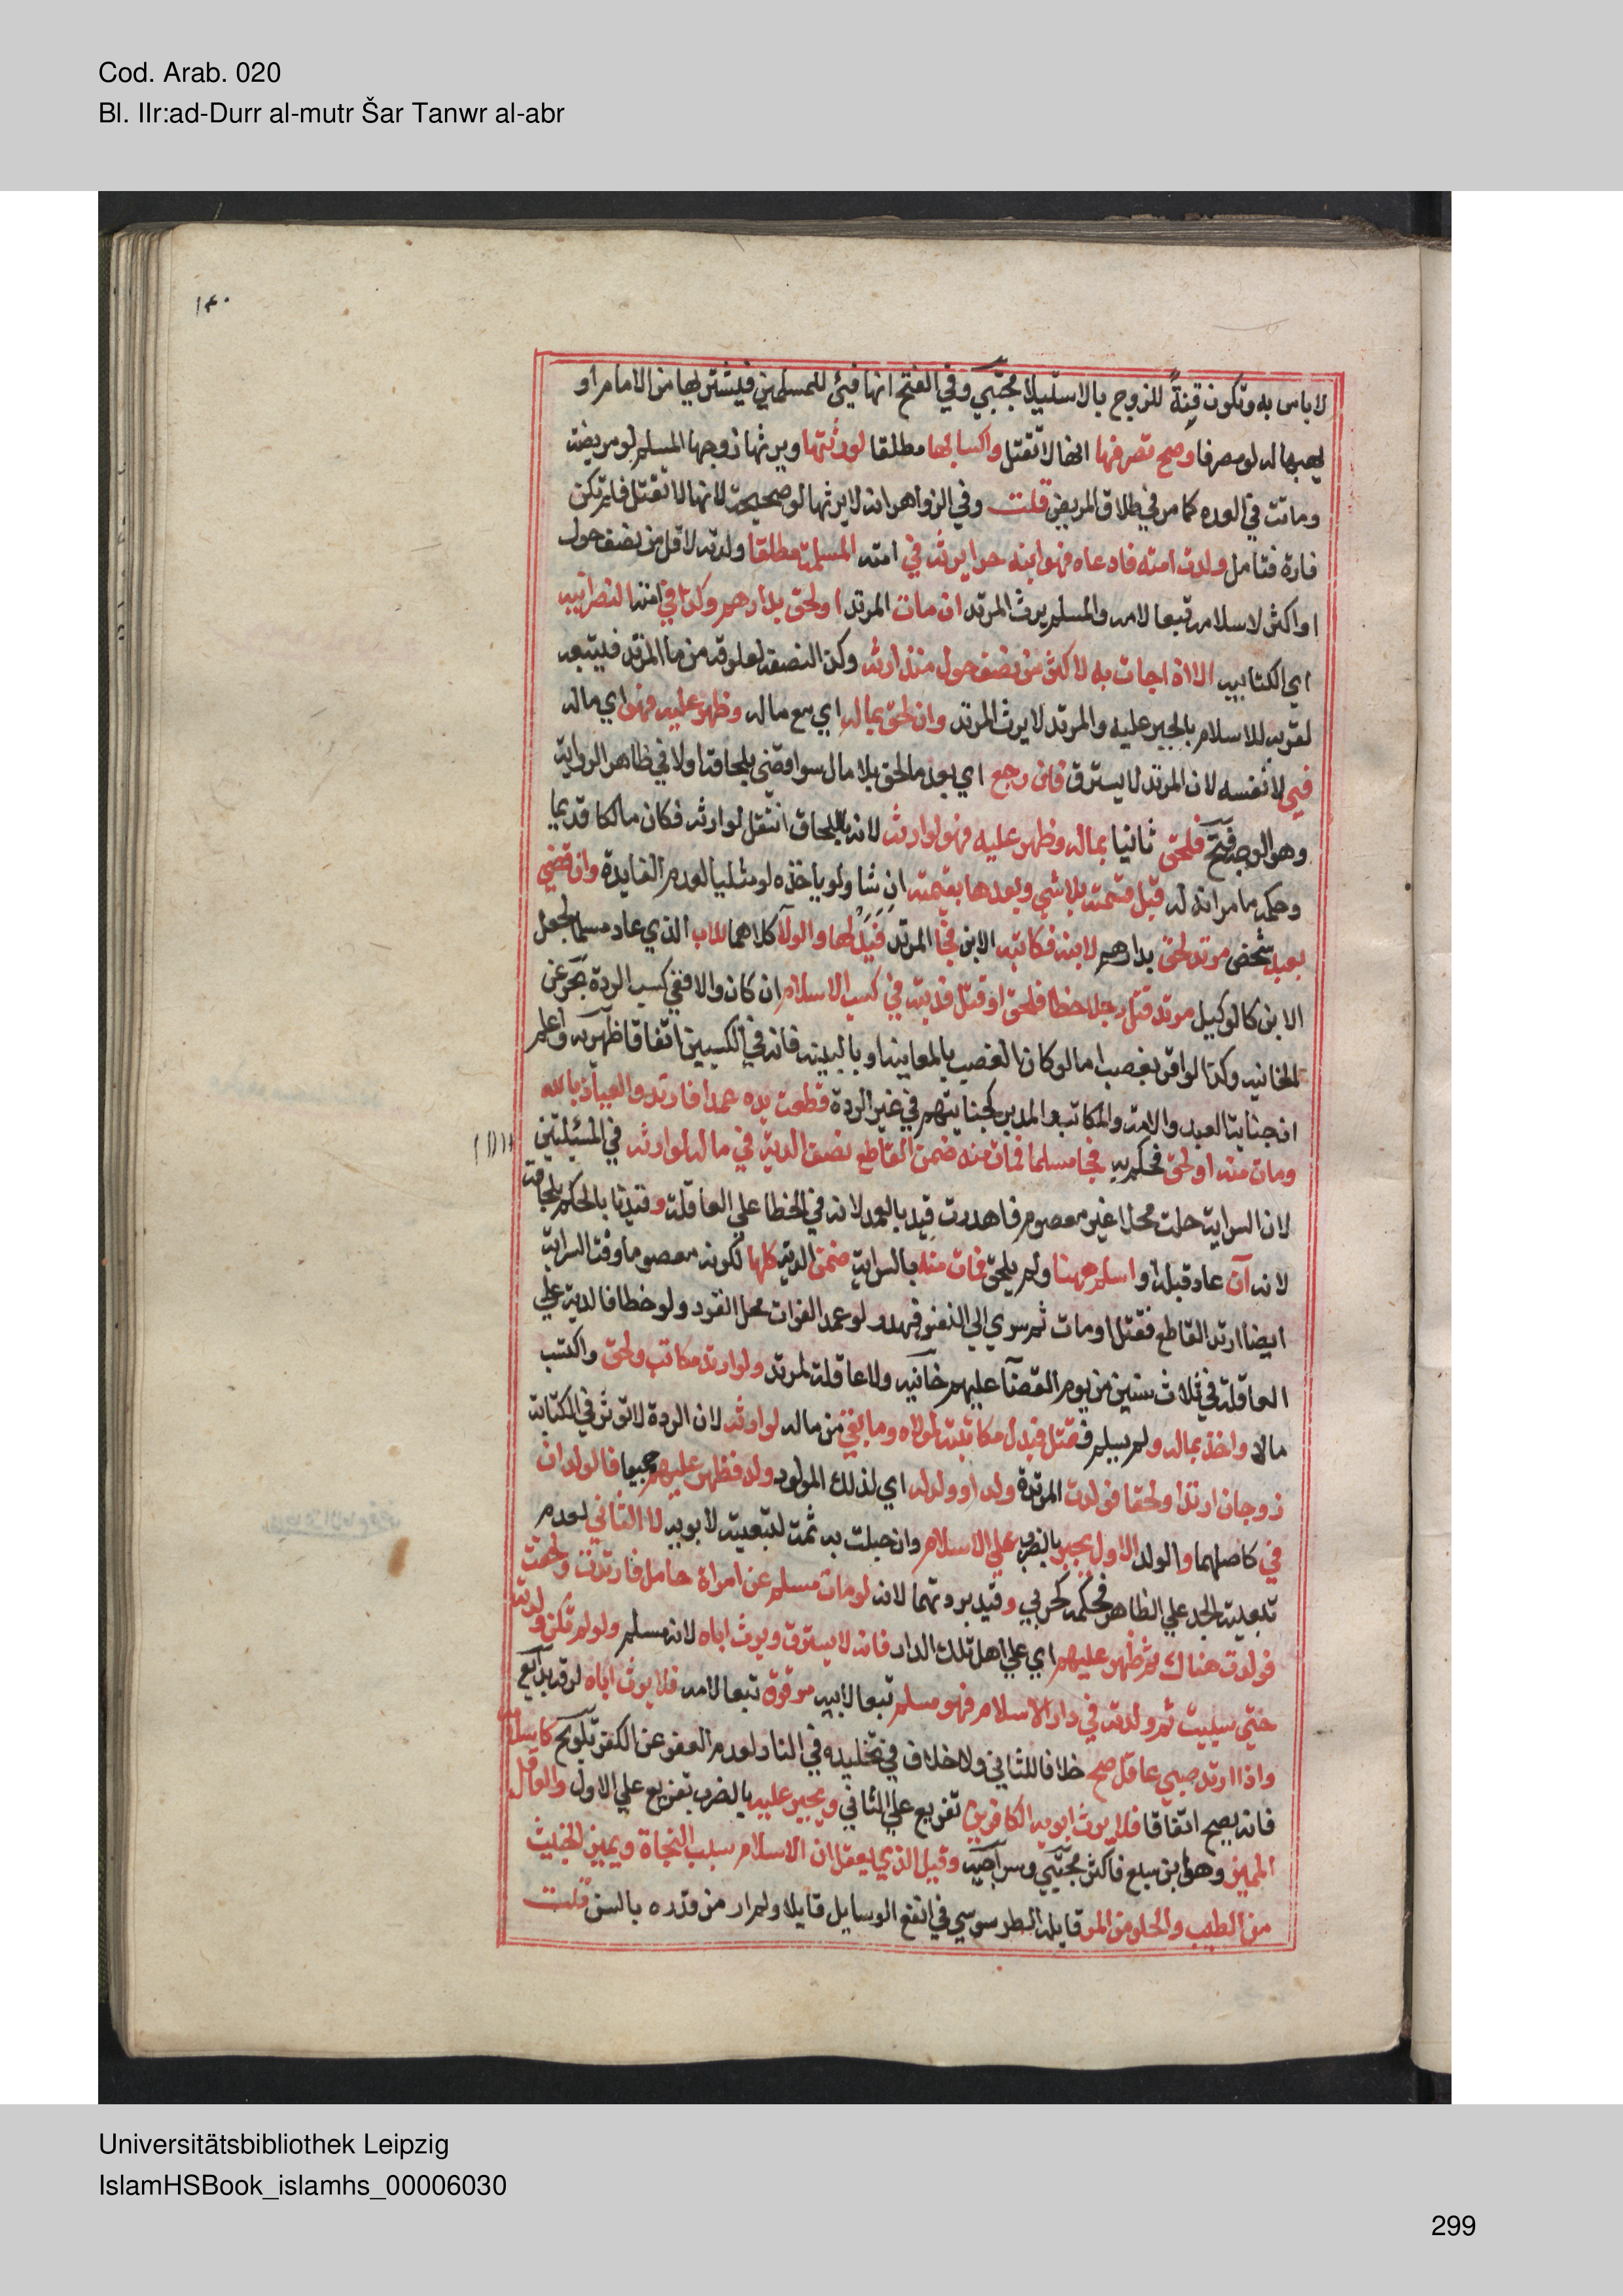 Cod. Arab. 020
Bl. IIr:ad-Durr al-mutr Šar Tanwr al-abr
١٤٠
لا باس به وتكون قنة للزوج بالاستيلا مجتبي وفي الفتح انها فيئ للمسلمين فيشتريها من الامام او
يهبها له لو مصرفا وصح تصرفها انها لا تقتل واكسابها مطلقا لورثتها ويرثها زوجها المسلم لو مريضة
وماتت في العده كما مر في طلاق المريض قلت وفي الزواهر انه لا يرثها لو صحيحة لانها لا تقتل فلم تكن
فارة فتامل ولدت امته فادعاه فهو ابنه حرا يرثه في امته المسلمة مطلقا ولدته لاقل من نصف حول
او اكثر لاسلامه تبعا لامه والمسلم يرث المرتد ان مات المرتد او لحق بدارهم وكذا في امته النصرانيه
اي الكتابيه الا اذا جات به لاكثر من نصف حول منذ ارتد وكذا لنصفه لعلوقه من ما المرتد فيتبعه
لقربه للاسلام بالجبر عليه والمرتد لا يرث المرتد وان لحق بماله اي مع ماله وظهر عليه فهو اي ماله
في لا نفسه لان المرتد لا يسترق فان رجع اي بعد ما لحق بلا مال سوا قضي بلحاقه اولا في ظاهر الرواية
وهو الوجه فتح فلحق ثانيا بماله وظهر عليه فهو لوارثه لانه باللحاق انتقل لوارثه فكان مالكا قديما
وحكمه ما مر انه له قبل قسمته بلا شي وبعدها بقيمته ان شا ولو ياخذه لو مثليا لعدم الفايدة وان قضي
بعبد شخص مرتد لحق بدارهم لابنه فكاتبه الابن فجا المرتد فبدلها والولا كلاهما للاب الذي عاد مسلما لجعل
الابن كالوكيل مرتد قتل رجلا خطا فلحق او قتل فديته في كسب الاسلام ان كان والا ففي كسب الردة بحر عن
الخانيه وكذا لو اقر بغصب اما لو كان الغصب بالمعاينه او بالبينه فانه في الكسبين اتفاقا ظهيريه واعلم
ان جناية العبد والامة والمكاتب والمدبر كجنايتهم في غير الردة قطعت يده عمدا فارتد والعياذ بالله
ومات منه او لحق فحكم به فجا مسلما فمات منه ضمن القاطع نصف الدية في ماله لوارثه في المسئلتين
لان السراية حلت محلا غير معصوم فاهدرت قيد بالعمد لانه في الخطا علي العاقلة وقيدنا بالحكم بلحاقه
لانه ان عاد قبله او اسلم ههنا ولم يلحق فمات منه بالسراية ضمن الدية كلها لكونه معصوما وقت السراية
ايضا ارتد القاطع فقتل او مات ثم سري الي النفس فهدر لو عمد الفوات محل القود ولو خطا فالدية علي
العاقلة في ثلاث سنين من يوم القضا عليهم خانيه ولا عاقلة لمرتد ولو ارتد مكاتب ولحق واكتسب
مالا واخذ بماله ولم يسلم فقتل فبدل مكاتبته لمولاه وما بقي من ماله لوارثه لان الردة لا توثر في الكتابة
زوجان ارتدا ولحقا فولدت المرتدة ولدا وولد له اي لذلك المولود ولد فظهر عليهم جميعا فالولدان
في كاصلهما والولد الاول يجبر بالضرب علي الاسلام وان حبلت به ثمت لتبعيته لابويه لا الثاني لعدم
تبعية الجد علي الظاهر فحكمه كحربي وقيد بردتهما لانه لو مات مسلم عن امراة حامل فارتدت ولحقت
فولدت هناك ثم ظهر عليهم اي علي اهل تلك الدار فانه لا يسترق ويرث اباه لانه مسلم ولو لم تكن ولدته
حتي سبيت ثم ولدته في دار الاسلام فهو مسلم تبعا لابيه مرقوق تبعا لامه فلا يرث اباه لرقه بدايع
واذا ارتد صبي عاقل صح خلافا للثاني ولا خلاف في تخليده في النار لعدم العفو عن الكفر تلويح كاسلامه
فانه يصح اتفاقا فلا يرث ابويه الكافرين تفريع علي الثاني ويجبر عليه بالضرب تفريع علي الاول والعاقل
المميز وهو ابن سبع فاكثر مجتبي وسراجيه وقيل الذي يعقل ان الاسلام سبب النجاة ويميز الخبيث
من الطيب والحلو من المر قايله الطرسوسي في انفع الوسايل قايلا ولم ار من قدره بالسن قلت
Universitätsbibliothek Leipzig
IslamHSBook_islamhs_00006030
299